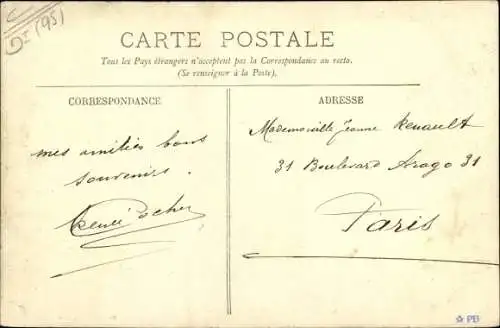 DI (95)
CARTE POSTALE
Tous les Pays étrangers n'acceptent pas la Correspondance au recto.
(Se renseigner à la Poste).
CORRESPONDANCE
mes amitiés bons
souvenirs.
ADRESSE
Mademoiselle Jeanne Renault
31 Boulevard Arago 31
Paris
PB